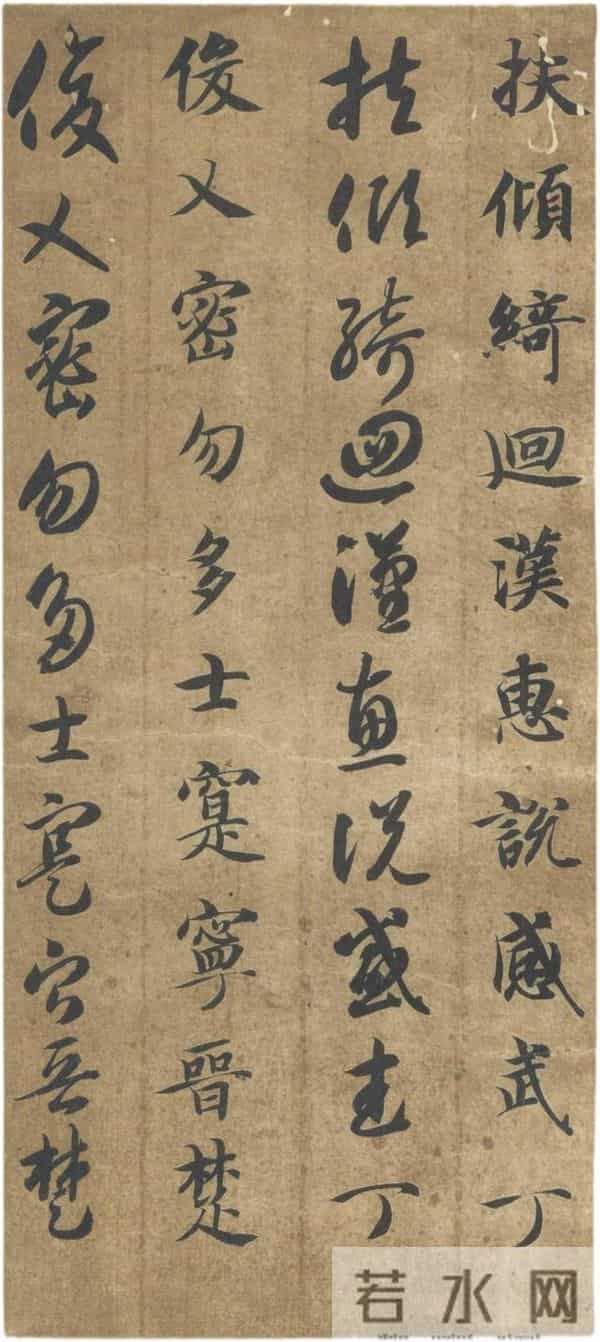 扶傾綺迴漢惠說感武丁
扶傾綺迴漢惠說感武丁
俊乂密勿多士寔寧晉楚
俊乂密勿多士寔寧晉楚
若水网